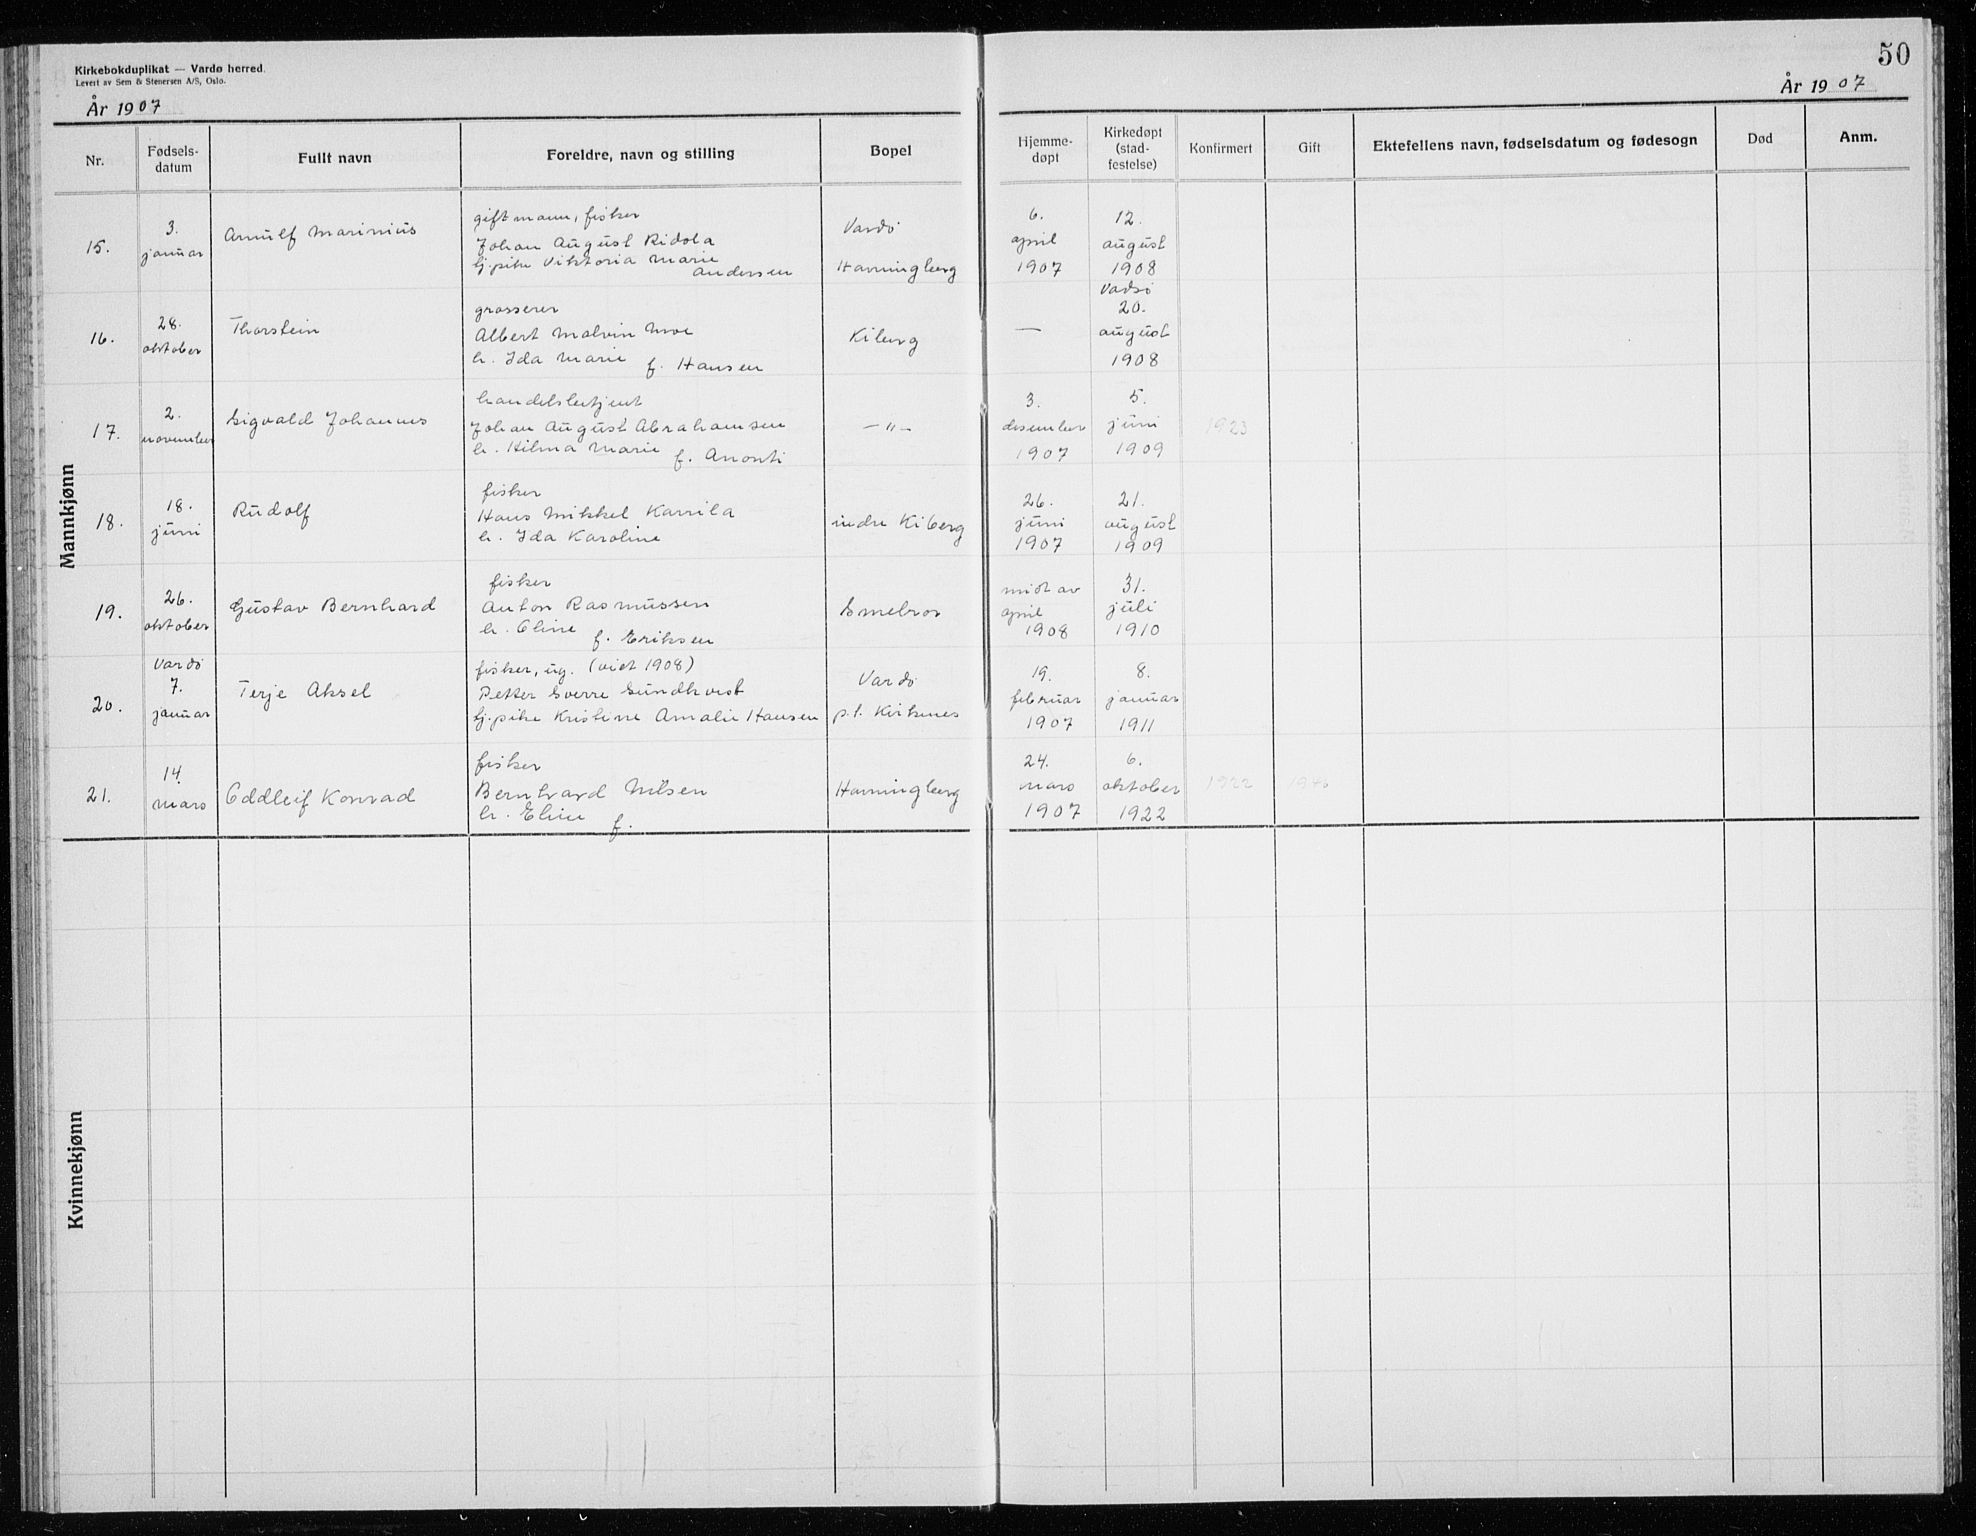 Kirkebokduplikat — Vardø herred.
Levert av Sem & Stenersen A/S, Oslo.
År 1907
50
År 1907
Nr.
Fødsels-
datum
Fullt navn
Foreldre, navn og stilling
Bopel
Hjemme-
døpt
Kirkedøpt
(stad-
festelse)
Konfirmert
Gift
Ektefellens navn, fødselsdatum og fødesogn
Død
Anm.
Mannkjønn
15.
3.
januar
Arnulf Marinius
gift mann, fisker
Johan August Ridola
tj.pike Viktoria Marie
Andersen
Vardø
Havningberg
6.
april
1907
12.
august
1908
16.
28.
oktober
Thorstein
grosserer
Albert Malvin Moe
h. Ida Marie f. Hansen
Kiberg
—
Vadsø
20.
august
1908
17.
2.
november
Sigvald Johannes
handelsbetjent
Johan August Abrahamsen
h. Hilma Marie f. Anonti
—"—
3.
desember
1907
5.
juni
1909
1923
18.
18.
juni
Rudolf
fisker
Hans Mikkel Karrila
h. Ida Karoline
indre Kiberg
26.
juni
1907
21.
august
1909
19.
26.
oktober
Gustav Bernhard
fisker
Anton Rasmussen
h. Oline f. Eriksen
Smelror
midt av
april
1908
31.
juli
1910
20.
Vardø
7.
januar
Terje Aksel
fisker, ug. (viet 1908)
Petter Sverre Sundkvist
tj.pike Kristine Amalie Hansen
Vardø
p.t. Kirkenes
19.
februar
1907
8.
januar
1911
21.
14.
mars
Oddleif Konrad
fisker
Bernhard Nilsen
h. Eline f.
Havningberg
24.
mars
1907
6.
oktober
1922
1922
Kvinnekjønn